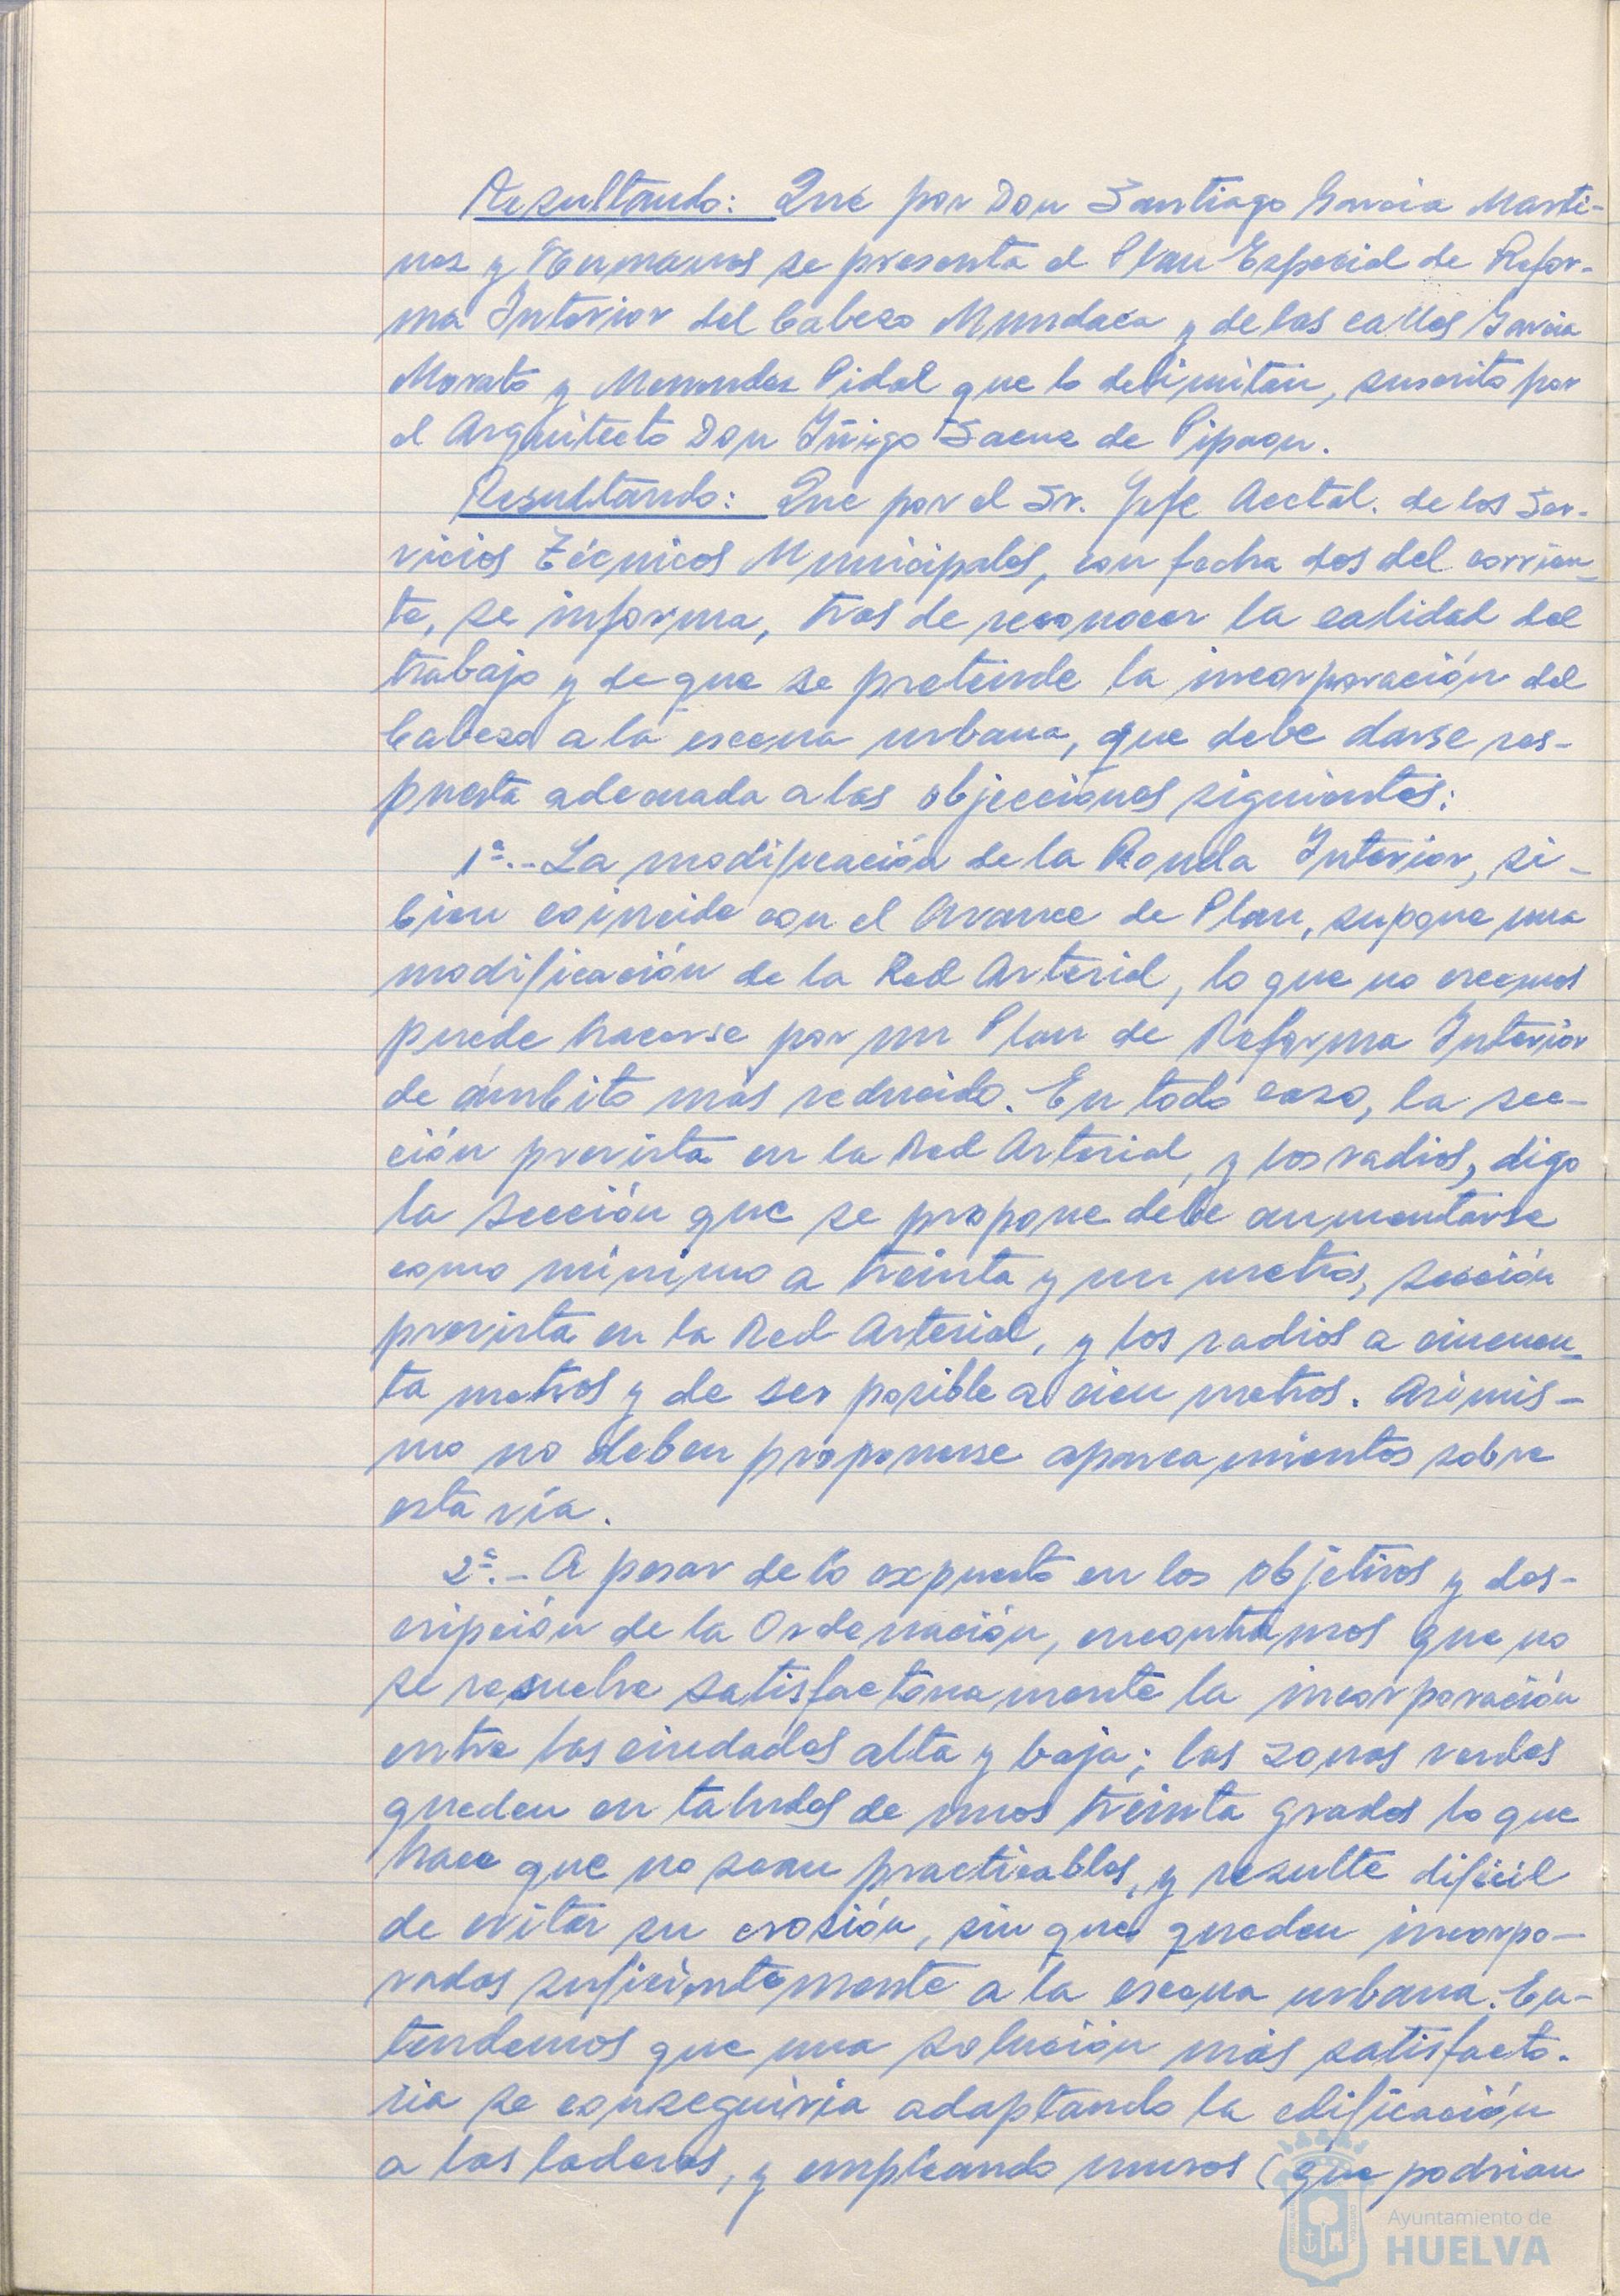 Resultando: Que por Don Santiago Garcia Marti-
nez y Hermanos se presenta el Plan Especial de Refor-
ma Interior del Cabezo Mundaca y de las calles Garcia
Morato y Menendez Pidal que lo delimitan, suscrito por
el Arquitecto Don Iñigo Saenz de Pipaon.
Resultando: Que por el Sr. Jefe Acctal. de los Ser-
vicios Técnicos Municipales, con fecha dos del corrien-
te, se informa, tras de reconocer la calidad del
trabajo y de que se pretende la incorporación del
Cabezo a la escena urbana, que debe darse res-
puesta adecuada a las objecciones siguientes:
1ª.- La modificación de la Ronda Interior, si-
bien coincide con el Avance de Plan, supone una
modificación de la Red Arterial, lo que no creemos
puede hacerse por un Plan de Reforma Interior
de ámbito más reducido. En todo caso, la sec-
ción prevista en la Red Arterial, y los radios, digo
la sección que se propone debe aumentarse
como mínimo a treinta y un metros, sección
prevista en la Red Arterial, y los radios a cincuen-
ta metros y de ser posible a cien metros. Asimis-
mo no deben proponerse aparcamientos sobre
esta vía.
2ª.- A pesar de lo expuesto en los objetivos y des-
cripción de la Ordenación, encontramos que no
se resuelve satisfactoriamente la incorporación
entre las ciudades alta y baja; las zonas verdes
queden en taludes de unos treinta grados lo que
hace que no sean practicables, y resulte difícil
de evitar su erosión, sin que queden incorpo-
radas suficientemente a la escena urbana. En-
tendemos que una solución más satisfacto-
ria se conseguiria adaptando la edificación
a las laderas, y empleando muros (que podrian
Ayuntamiento de
HUELVA